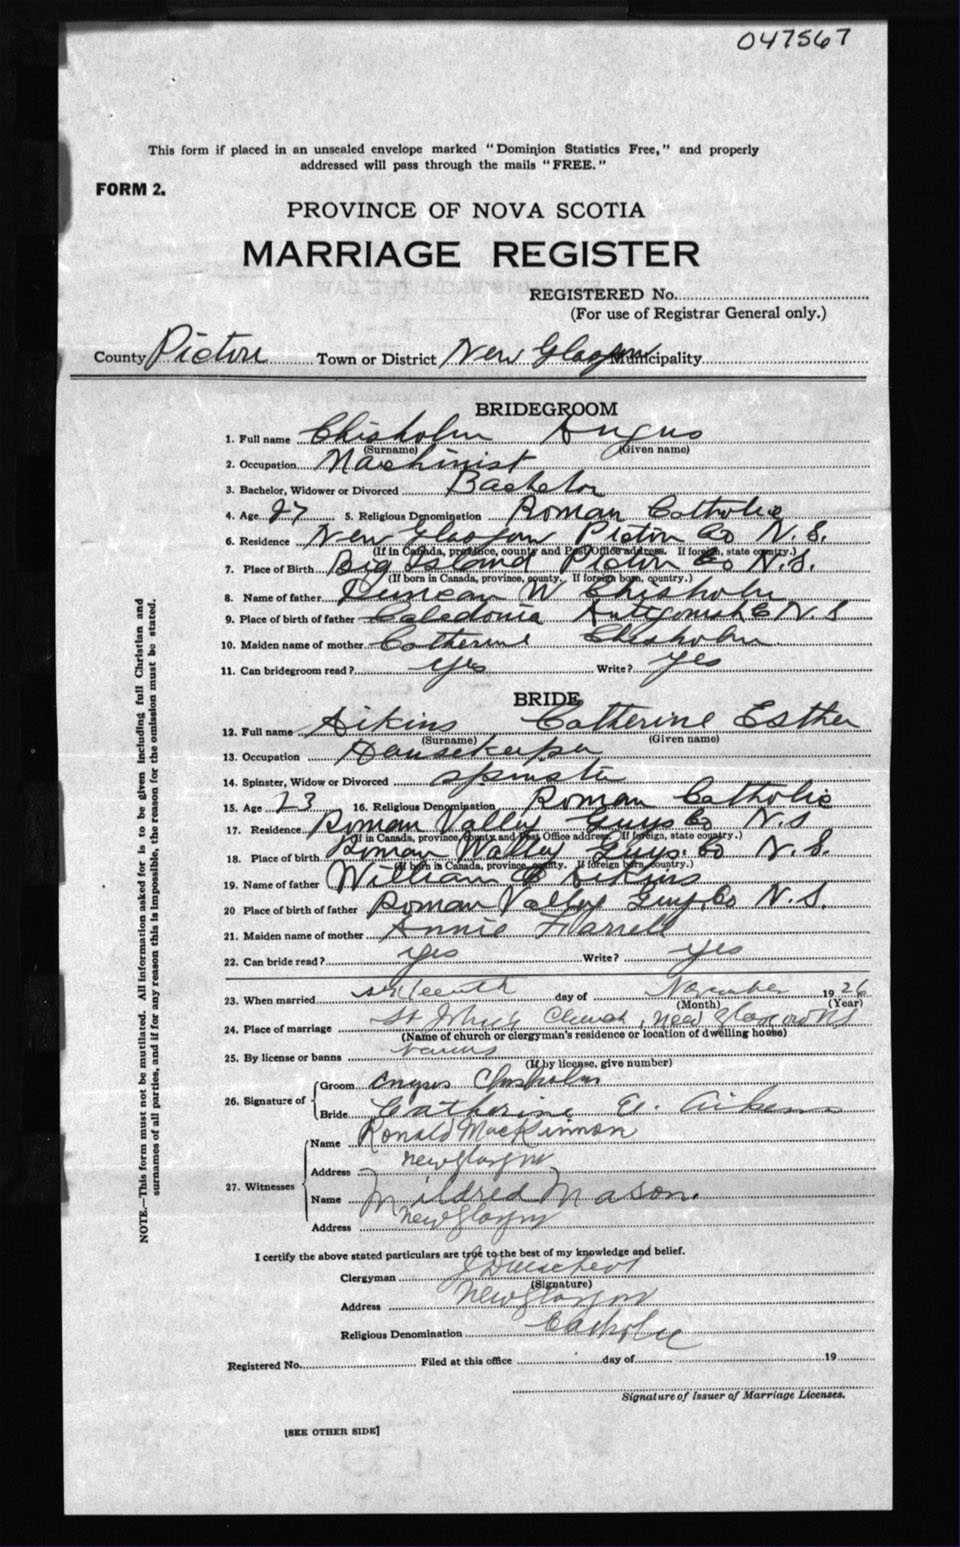 047567
This form if placed in an unsealed envelope marked "Dominion Statistics Free," and properly
addressed will pass through the mails "FREE."
FORM 2.
PROVINCE OF NOVA SCOTIA
MARRIAGE REGISTER
REGISTERED No.
(For use of Registrar General only.)
County Pictou Town or District New Glasgow Municipality
BRIDEGROOM
1. Full name Chisholm Angus
(Surname) (Given name)
2. Occupation Machinist
3. Bachelor, Widower or Divorced Bachelor
4. Age 27 5. Religious Denomination Roman Catholic
6. Residence New Glasgow Pictou Co N.S.
(If in Canada, province, county and Post Office address. If foreign, state country.)
7. Place of Birth Big Island Pictou Co N.S.
(If born in Canada, province, county. If foreign born, country.)
8. Name of father Duncan W Chisholm
9. Place of birth of father Caledonia Antigonish Co N.S
10. Maiden name of mother Catherine Chisholm
11. Can bridegroom read? yes Write? yes
BRIDE
12. Full name Aikins Catherine Esther
(Surname) (Given name)
13. Occupation Housekeeper
14. Spinster, Widow or Divorced spinster
15. Age 23 16. Religious Denomination Roman Catholic
17. Residence Roman Valley Guys Co N.S
(If in Canada, province, county and Post Office address. If foreign, state country.)
18. Place of birth Roman Valley Guys. Co N.S.
(If born in Canada, province, county. If foreign born, country.)
19. Name of father William Aikins
20 Place of birth of father Roman Valley Guys. Co N.S.
21. Maiden name of mother Annie Farrell
22. Can bride read? yes Write? yes
23. When married sixteenth day of November 1926
(Month) (Year)
24. Place of marriage St John's Church, New Glasgow NS
(Name of church or clergyman's residence or location of dwelling house)
25. By license or banns banns
(If by license, give number)
26. Signature of
Groom Angus Chisholm
Bride Catherine E. Aikens
27. Witnesses
Name Ronald MacKinnon
Address New Glasgow
Name Mildred Mason.
Address New Glasgow
I certify the above stated particulars are true to the best of my knowledge and belief.
Clergyman
(Signature)
Address New Glasgow
Religious Denomination Catholic
Registered No. Filed at this office day of 19
Signature of Issuer of Marriage Licenses.
[SEE OTHER SIDE]
NOTE.—This form must not be mutilated. All information asked for is to be given including full Christian and
surnames of all parties, and if for any reason this is impossible, the reason for the omission must be stated.